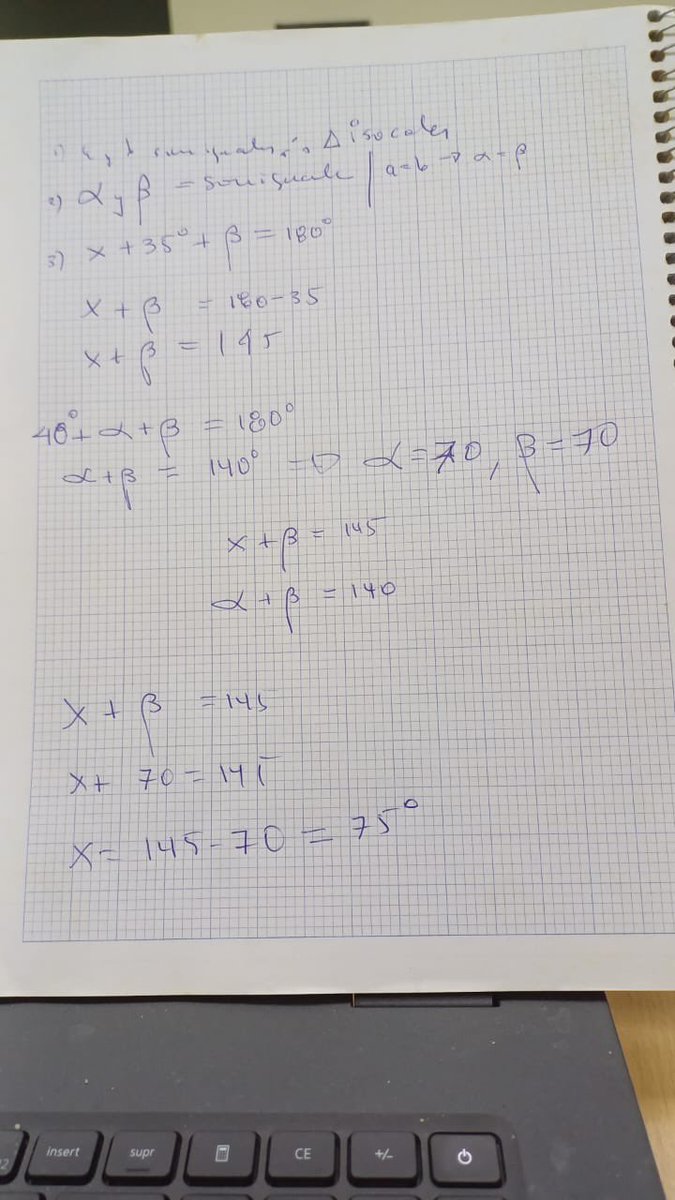 1) a y b son iguales ∴ Δ isoceles
2) α y β = son iguale | a=b → α = β
3) x + 35° + β = 180°
x + β = 180-35
x + β = 145
40° + α + β = 180°
α + β = 140° => α = 70, β = 70
x + β = 145
α + β = 140
x + β = 145
x + 70 = 145
x = 145 - 70 = 75°
insert supr CE +/-